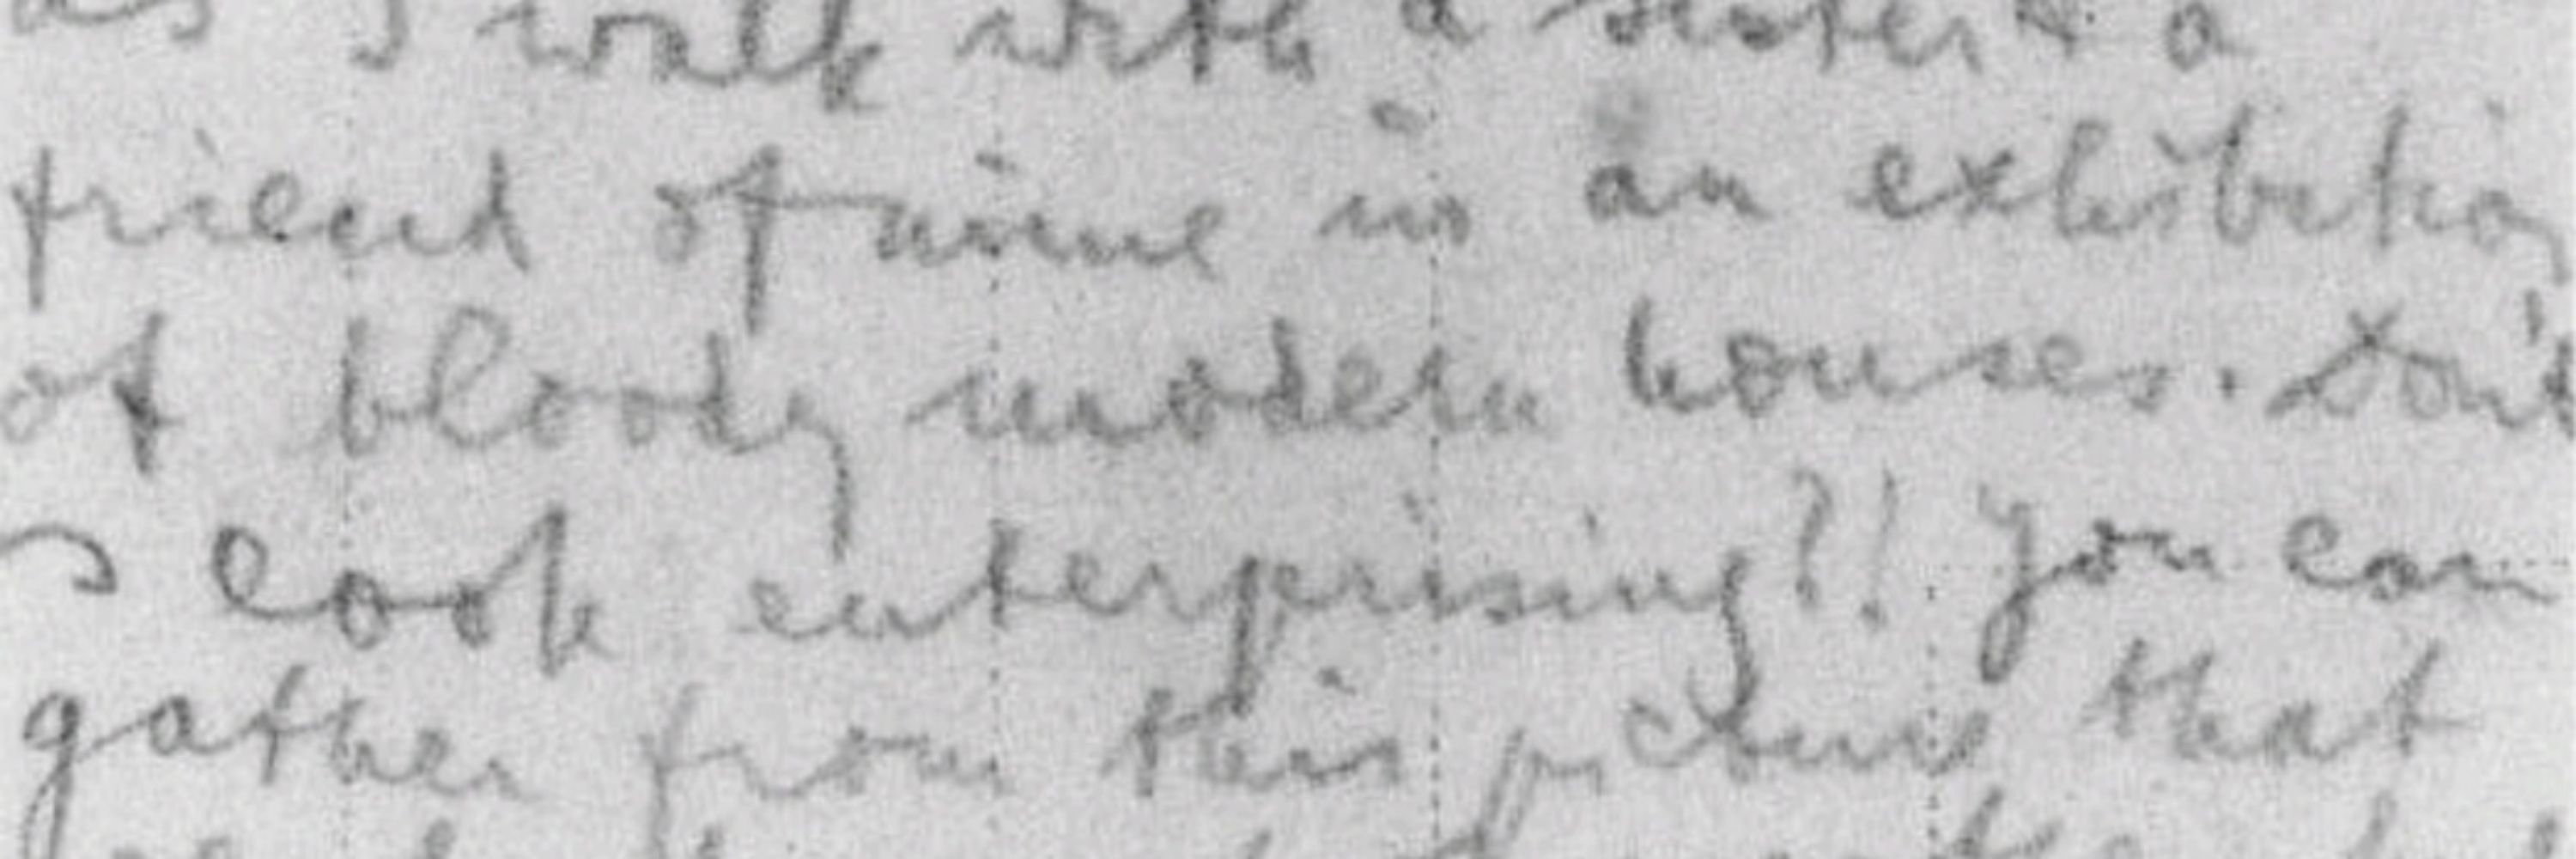 as I walk with a sister & a
friend of mine in an exhibition
of bloody modern houses. Don't
I look enterprising?! You can
gather from this picture that